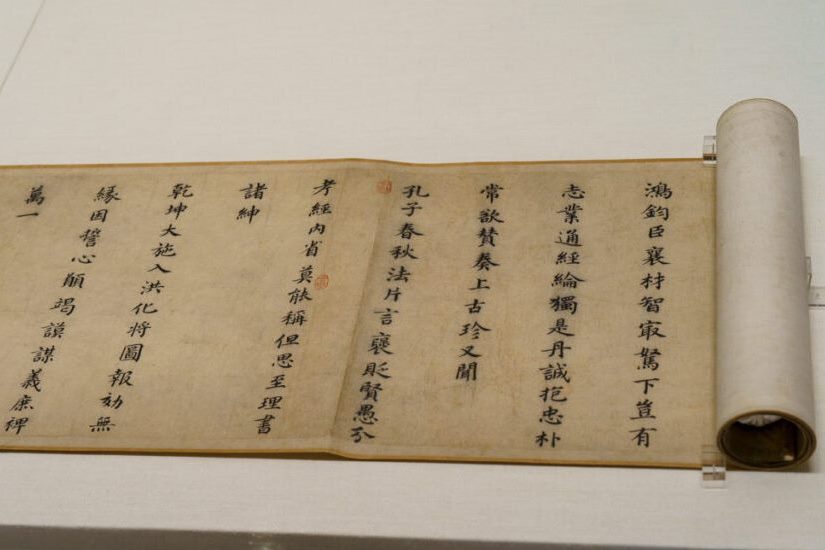 鴻鈞臣襄材智冣駑下豈有
志業通經綸獨是丹誠抱忠朴
常欲賛奏上古珍又聞
孔子春秋法片言襃貶賢愚分
考經内省莫能稱但思至理書
諸紳
乾坤大施入洪化將圖報効無
緣因誓心願竭謨謀義庶裨
萬一